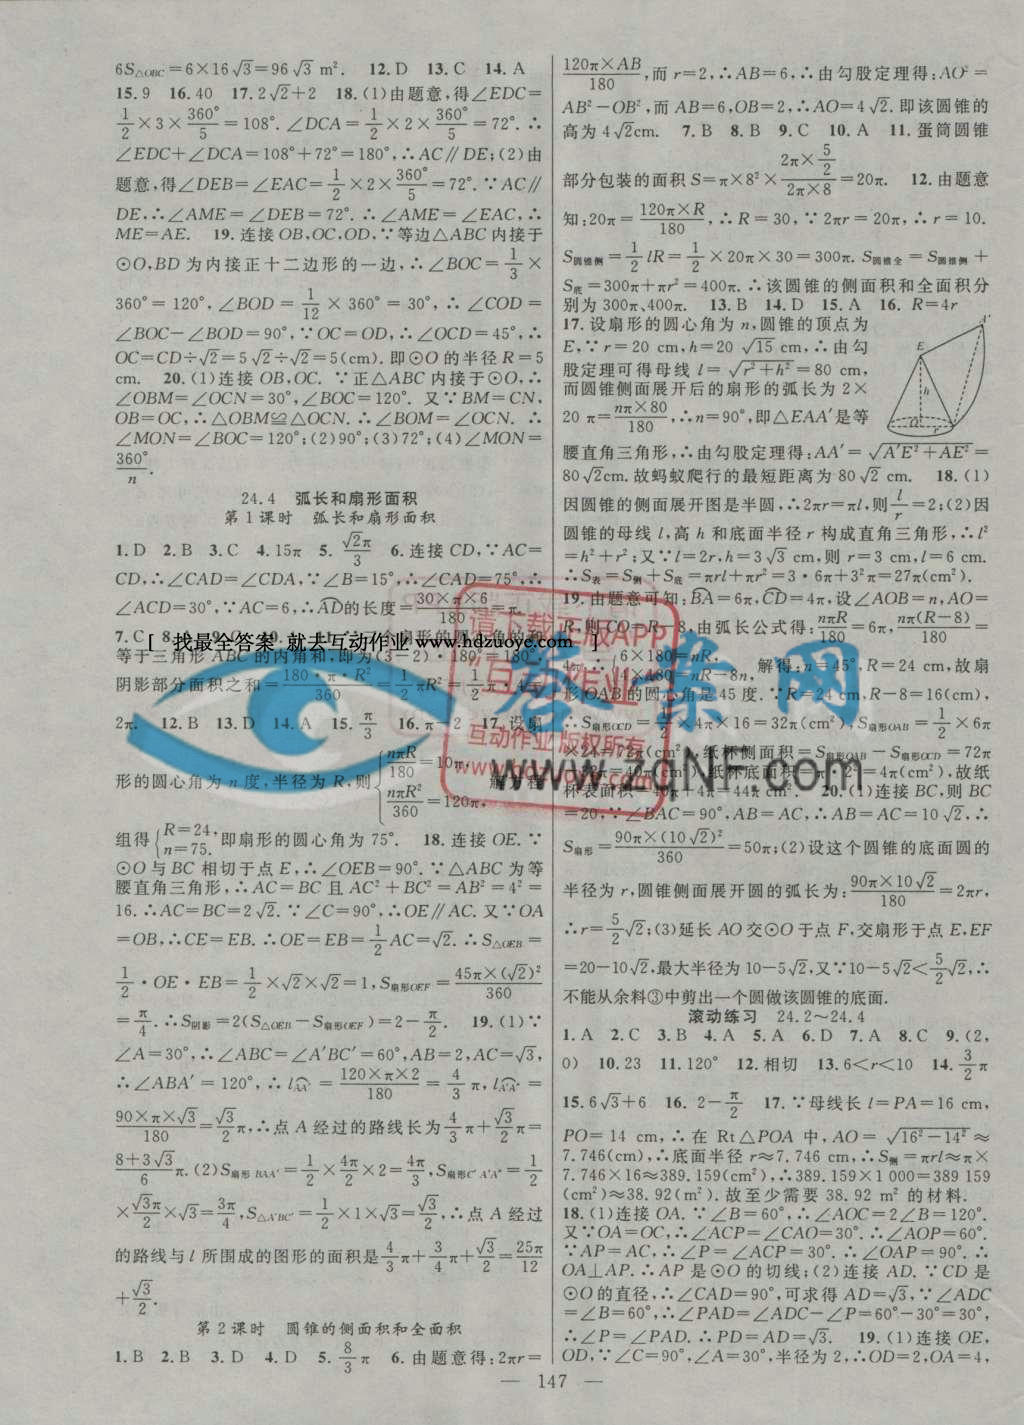 6S△OBC=6×16√3=96√3 m². 12.D 13.C 14.A
15.9 16.40 17.2√2+2 18.(1)由题意,得∠EDC=
1/2×3×360°/5=108°. ∠DCA=1/2×2×360°/5=72°. ∴
∠EDC+∠DCA=108°+72°=180°,∴AC∥DE;(2)由
题意,得∠DEB=∠EAC=1/2×2×360°/5=72°. ∵AC∥
DE,∴∠AME=∠DEB=72°. ∴∠AME=∠EAC,∴
ME=AE. 19.连接OB,OC,OD,∵等边△ABC内接于
⊙O,BD为内接正十二边形的一边,∴∠BOC=1/3×
360°=120°,∠BOD=1/12×360°=30°,∴∠COD=
∠BOC-∠BOD=90°,∵OC=OD,∴∠OCD=45°,∴
OC=CD÷√2=5√2÷√2=5(cm). 即⊙O的半径R=5
cm. 20.(1)连接OB,OC. ∵正△ABC内接于⊙O,∴
∠OBM=∠OCN=30°,∠BOC=120°. 又∵BM=CN,
OB=OC,∴△OBM≌△OCN. ∴∠BOM=∠OCN. ∴
∠MON=∠BOC=120°;(2)90°;(3)72°;(4)∠MON=
360°/n.
24.4 弧长和扇形面积
第1课时 弧长和扇形面积
1.D 2.B 3.C 4.15π 5.√2π/3 6.连接CD,∵AC=
CD,∴∠CAD=∠CDA,∵∠B=15°,∴∠CAD=75°,∴
∠ACD=30°,∵AC=6,∴AD的长度=30×π×6/180=π.
7.C
[ 找最全答案 就去互动作业 www.hdzuoye.com ]
等于三角形ABC的内角和,即为(3-2)·180°=180°.∴
阴影部分面积之和=180·π·R²/360=1/2πR²=1/2π·4=
2π. 12.B 13.D 14.A 15.π/3 16.π-2 17.设扇
形的圆心角为n度,半径为R,则{nπR/180=10π, nπR²/360=120π, 解方程
组得{R=24, n=75. 即扇形的圆心角为75°. 18.连接OE. ∵
⊙O与BC相切于点E,∴∠OEB=90°. ∵△ABC为等
腰直角三角形,∴AC=BC且AC²+BC²=AB²=4²=
16. ∴AC=BC=2√2. ∵∠C=90°,∴OE∥AC. 又∵OA
=OB,∴CE=EB. ∴OE=EB=1/2AC=√2. ∴S△OEB=
1/2·OE·EB=1/2×√2×√2=1,S扇形OEF=45π×(√2)²/360
=π/4. ∴S阴影=2(S△OEB-S扇形OEF)=2-π/2. 19.(1)∵
∠A=30°,∴∠ABC=∠A′BC′=60°,∵BC=1,AC=√3,
∴∠ABA′=120°,∴lAA′=120×π×2/180=4/3π,lA′A″=
90×π×√3/180=√3/2π,∴点A经过的路线长为4/3π+√3/2π=
8+3√3/6π. (2)S扇形BAA′=1/2×4π/3×2=4π/3,S扇形C′A′A″=1/2
×√3π/2×√3=3π/4,S△A′BC′=1/2×1×√3=√3/2,∴点A经过
的路线与l所围成的图形的面积是4/3π+3/4π+√3/2=25π/12
+√3/2.
第2课时 圆锥的侧面积和全面积
1.B 2.D 3.D 4.D 5.8/3π 6.由题意得:2πr=
120π×AB/180,而r=2,∴AB=6,∴由勾股定理得:AO²=
AB²-OB²,而AB=6,OB=2,∴AO=4√2. 即该圆锥的
高为4√2cm. 7.B 8.B 9.C 10.A 11.蛋筒圆锥
部分包装的面积S=π×8²×2π×5/2/2π×8=20π. 12.由题意
知:20π=120π×R/180,∴R=30,∵2πr=20π,∴r=10.
S圆锥侧=1/2lR=1/2×20π×30=300π. S圆锥全=S圆锥侧+
S底=300π+πr²=400π. ∴该圆锥的侧面积和全面积分
别为300π,400π. 13.B 14.D 15.A 16.R=4r
17.设扇形的圆心角为n,圆锥的顶点为
E,∵r=20 cm,h=20√15 cm,∴由勾
股定理可得母线l=√r²+h²=80 cm,
而圆锥侧面展开后的扇形的弧长为2×
20π=nπ×80/180,∴n=90°,即△EAA′是等
腰直角三角形,∴由勾股定理得:AA′=√A′E²+AE²=
80√2cm. 故蚂蚁爬行的最短距离为80√2 cm. 18.(1)
因圆锥的侧面展开图是半圆,∴2πr=πl,则l/r=2;(2)因
圆锥的母线l,高h和底面半径r构成直角三角形,∴l²
=h²+r²;又∵l=2r,h=3√3 cm,则r=3 cm,l=6 cm.
∴S表=S侧+S底=πrl+πr²=3·6π+3²π=27π(cm²).
19.由题意可知:BA=6π,CD=4π,设∠AOB=n,AO=
R,则CO=R-8,由弧长公式得:nπR/180=6π,nπ(R-8)/180=
4π,∴{6×180=nR, 解得:n=45,R=24 cm,故扇
形OAB的圆心角是45度. ∵R=24 cm,R-8=16(cm),
∴S扇形OCD=1/2×4π×16=32π(cm²),S扇形OAB=1/2×6π
×24=72π(cm²),纸杯侧面积=S扇形OAB-S扇形OCD=72π
-32π=40π(cm²),纸杯底面积=π·2²=4π(cm²),故纸
杯表面积=40π+4π=44π(cm²). 20.(1)连接BC,则BC
=20,∵∠BAC=90°,AB=AC,∴AB=AC=10√2,∴
S扇形=90π×(10√2)²/360=50π;(2)设这个圆锥的底面圆的
半径为r,圆锥侧面展开圆的弧长为:90π×10√2/180=2πr,
∴r=5/2√2;(3)延长AO交⊙O于点F,交扇形于点E,EF
=20-10√2,最大半径为10-5√2,又∵10-5√2<5/2√2,∴
不能从余料③中剪出一个圆做该圆锥的底面.
滚动练习 24.2~24.4
1.A 2.C 3.B 4.A 5.A 6.D 7.A 8.C 9.(2,
0) 10.23 11.120° 12.相切 13.6<r<10 14.3/2π
15.6√3+6 16.2-π/2 17.∵母线长l=PA=16 cm,
PO=14 cm,∴在Rt△POA中,AO=√16²-14²≈
7.746(cm),∴底面半径r≈7.746 cm,∴S侧=πrl≈π×
7.746×16≈389.159(cm²),∴389.159×1 000=389 159
(cm²)≈38.92(m²). 故至少需要38.92 m²的材料.
18.(1)连接OA. ∵∠B=60°,∴∠AOC=2∠B=120°.
又∵OA=OC,∴∠ACP=∠CAO=30°. ∴∠AOP=60°.
∵AP=AC,∴∠P=∠ACP=30°. ∴∠OAP=90°. ∴
OA⊥AP. ∴AP是⊙O的切线;(2)连接AD. ∵CD是
⊙O的直径,∴∠CAD=90°,可求得AD=√3,∵∠ADC
=∠B=60°,∴∠PAD=∠ADC-∠P=60°-30°=30°,
∴∠P=∠PAD. ∴PD=AD=√3. 19.(1)连接OE,
OD,∵∠C=90°,∠A=30°,半径为2,∴OD=2,OA=4,
— 147 —
请下载正版APP
互动作业
互动作业 版权所有
答案网
www.zqNF.com